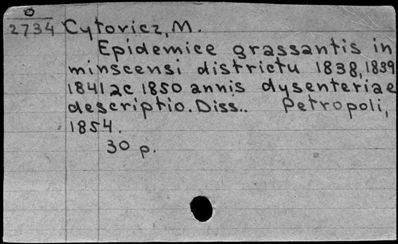 O
2734 Cytovicz, M.
Epidemice grassantis in
minscensi districtu 1838, 1839
1841 ac 1850 annis dysenteriae
descriptio. Diss.. Petropoli,
1854.
30 p.